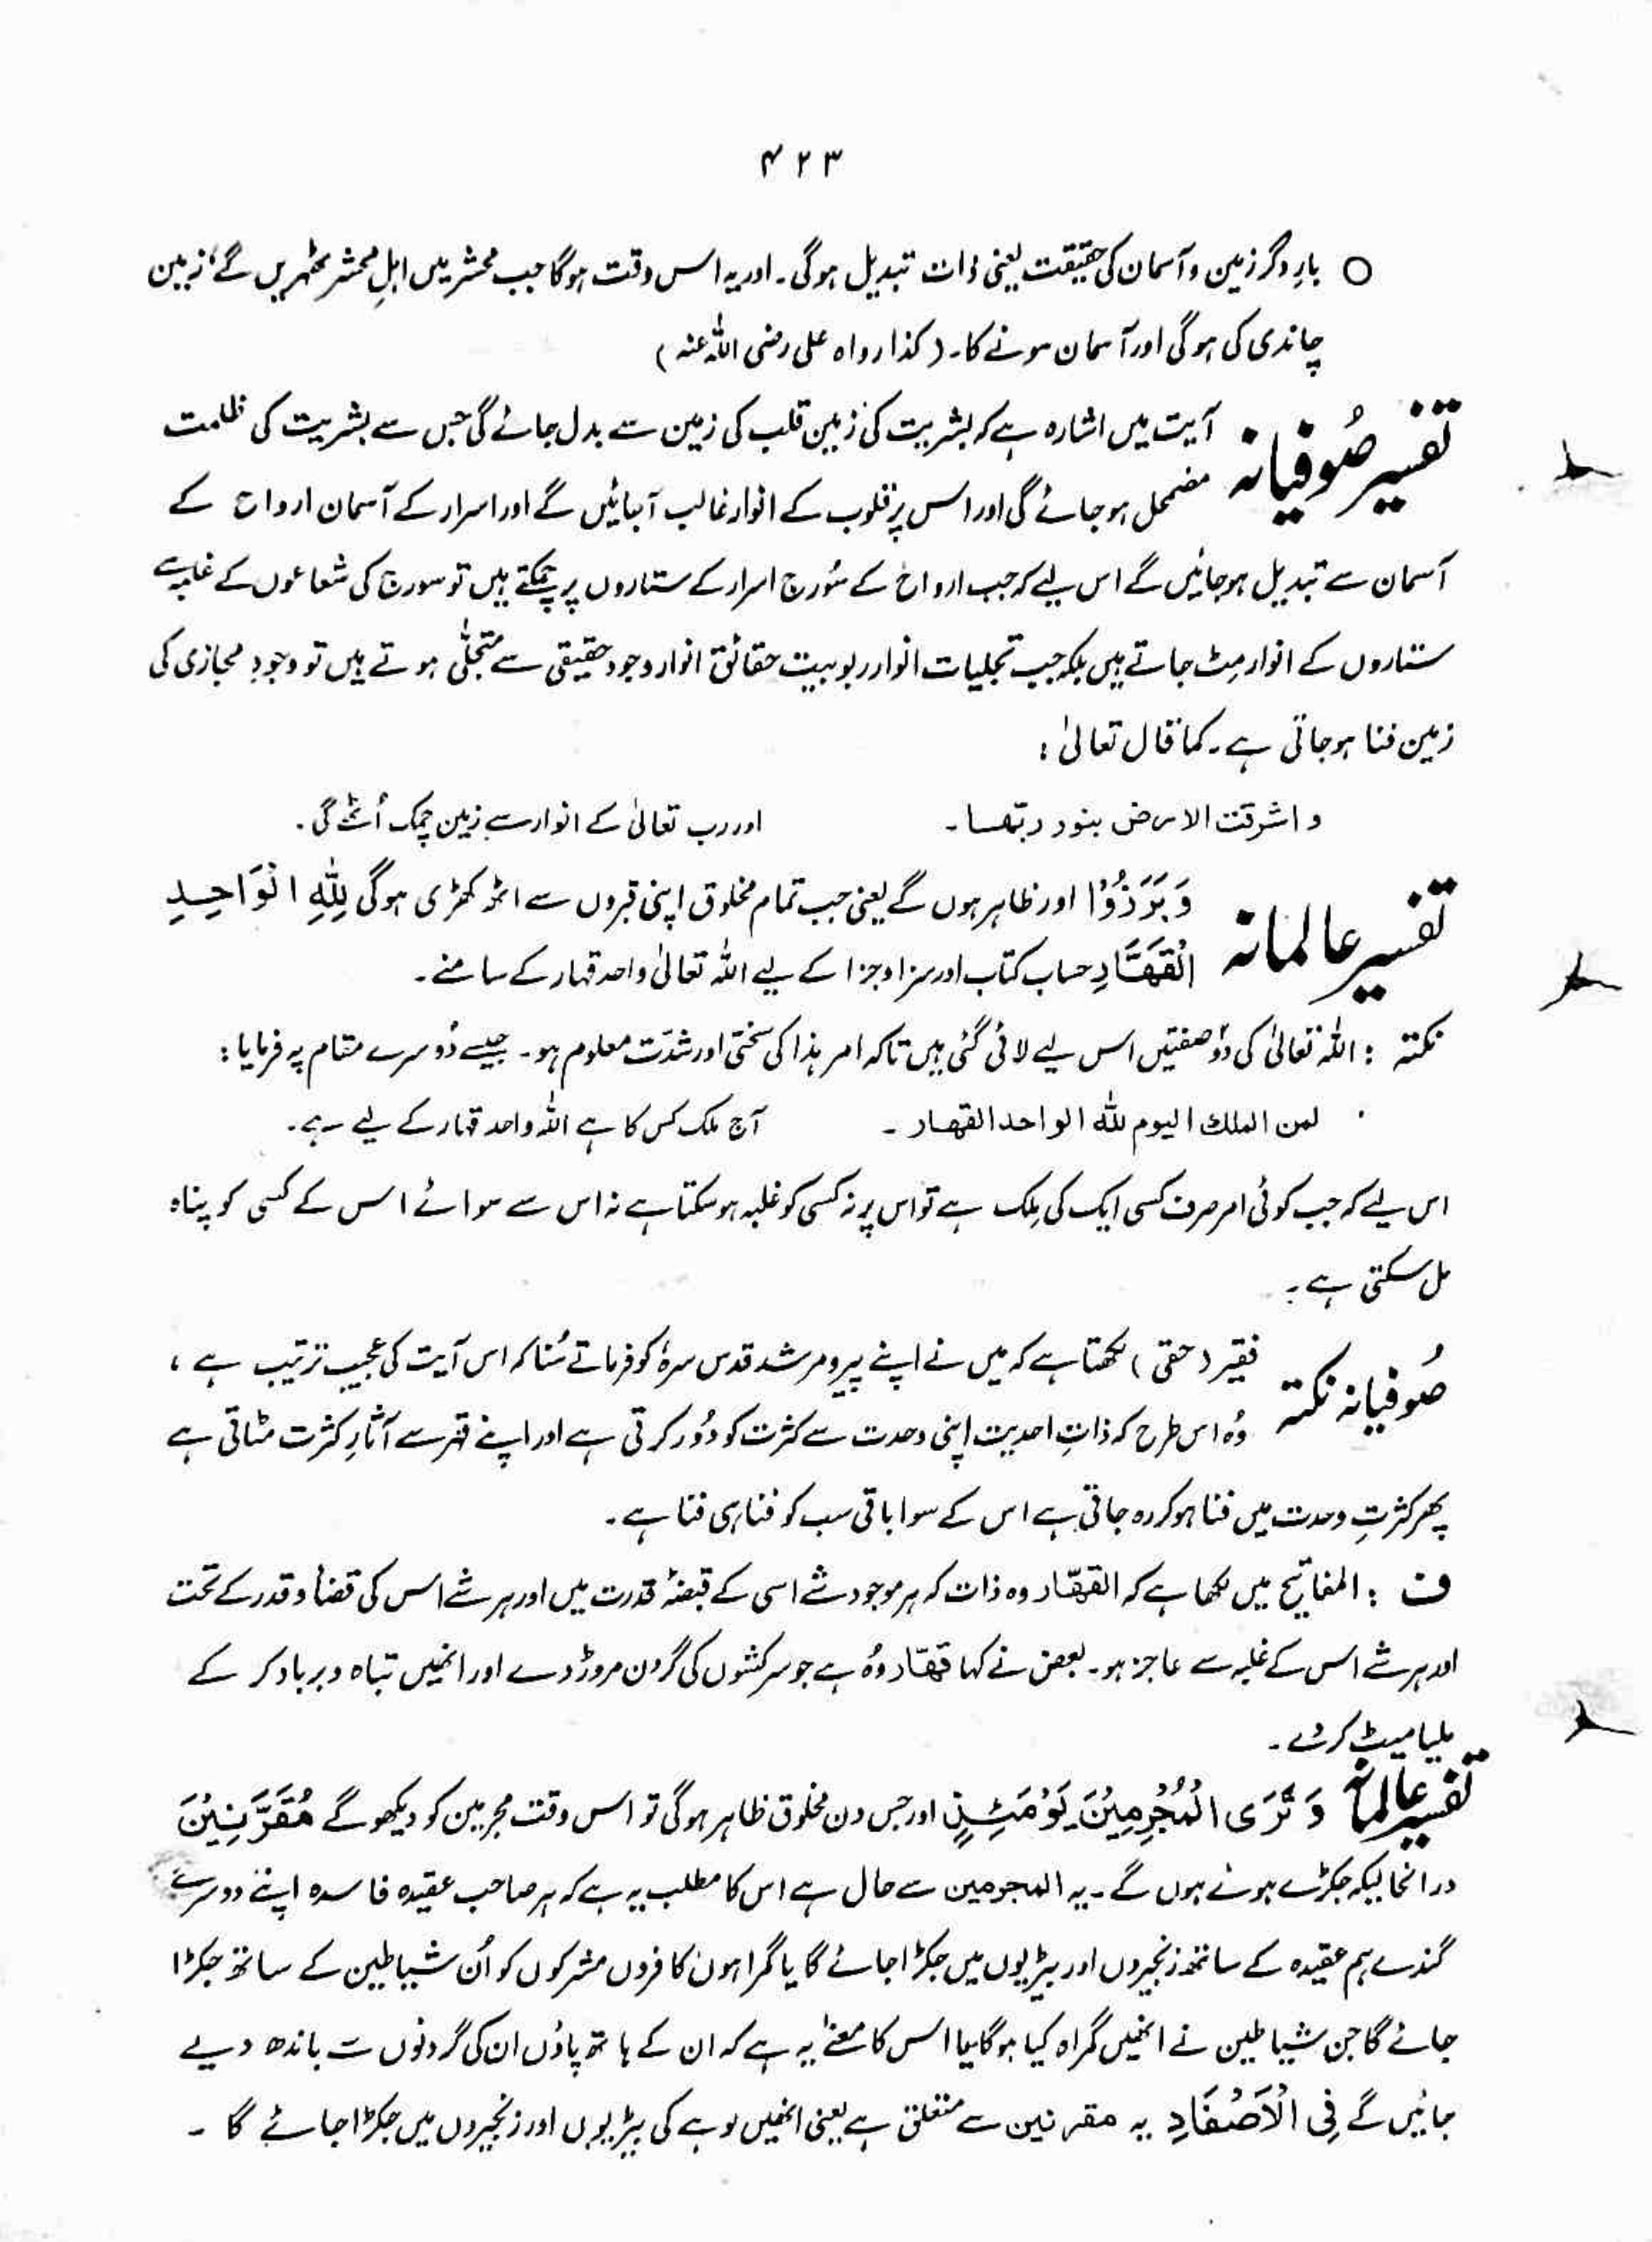 ۴۲۳
○ بارِ دگر زمین و آسمان کی حقیقت یعنی ذات تبدیل ہوگی۔ اور یہ اس وقت ہوگا جب محشر میں اہلِ محشر ٹھہریں گے، زمین
چاندی کی ہوگی اور آسمان سونے کا۔ (کذا رواہ علی رضی اللہ عنہ)
تفسیر صُوفیانہ آیت میں اشارہ ہے کہ بشریت کی زمین قلب کی زمین سے بدل جائے گی جس سے بشریت کی ظلمت
مضمحل ہو جائے گی اور اس پر قلوب کے انوار غالب آجائیں گے اور اسرار کے آسمان ارواح کے
آسمان سے تبدیل ہوجائیں گے اس لیے کہ جب ارواح کے سُورج اسرار کے ستاروں پر چمکتے ہیں تو سورج کی شعاعوں کے غلبہ سے
ستاروں کے انوار مِٹ جاتے ہیں بلکہ جب تجلیات انوار ربوبیت حقائق انوار وجود حقیقی سے متجلّی ہوتے ہیں تو وجودِ مجازی کی
زمین فنا ہوجاتی ہے۔ کما قال تعالیٰ :
و اشرقت الارض بنور ربّھا۔ اور رب تعالیٰ کے انوار سے زمین چمک اُٹھے گی۔
تفسیر عالمانہ وَ بَرَزُوْا اور ظاہر ہوں گے یعنی جب تمام مخلوق اپنی قبروں سے اٹھ کھڑی ہوگی لِلّٰہِ الْوَاحِدِ
الْقَھَّارِ حساب کتاب اور سزا و جزا کے لیے اللہ تعالیٰ واحد قہار کے سامنے۔
نکتہ : اللہ تعالیٰ کی دوؔ صفتیں اس لیے لائی گئی ہیں تاکہ امر ہٰذا کی سختی اور شدّت معلوم ہو۔ جیسے دُوسرے مقام پہ فرمایا :
لمن الملك الیوم للہ الواحد القھار۔ آج ملک کس کا ہے اللہ واحد قہار کے لیے ہے۔
اس لیے کہ جب کوئی امر صرف کسی ایک کی مِلک ہے تو اس پر نہ کسی کو غلبہ ہوسکتا ہے نہ اس سے سوائے اس کے کسی کو پناہ
مل سکتی ہے۔
صُوفیانہ نکتہ فقیر (حقی) لکھتا ہے کہ میں نے اپنے پیر و مرشد قدس سرہٗ کو فرماتے سُنا کہ اس آیت کی عجیب ترتیب ہے ،
وُہ اس طرح کہ ذاتِ احدیت اپنی وحدت سے کثرت کو دُور کرتی ہے اور اپنے قہر سے آثارِ کثرت مٹاتی ہے
پھر کثرتِ وحدت میں فنا ہوکر رہ جاتی ہے اس کے سوا باقی سب کو فنا ہی فنا ہے۔
ف : المفاتیح میں لکھا ہے کہ القھّار وہ ذات کہ ہر موجود شے اسی کے قبضۂ قدرت میں اور ہر شے اس کی قضا و قدر کے تحت
اور ہر شے اس کے غلبہ سے عاجز ہو۔ بعض نے کہا قھّار وُہ ہے جو سرکشوں کی گردن مروڑ دے اور انھیں تباہ و برباد کر کے
ملیامیٹ کردے۔
تفسیر عالمانہ وَ تَرَی الْمُجْرِمِیْنَ یَوْمَئِذٍ اور جس دن مخلوق ظاہر ہوگی تو اس وقت مجرمین کو دیکھو گے مُقَرَّنِیْنَ
درانحالیکہ جکڑے ہوئے ہوں گے۔ یہ المجرمین سے حال ہے اس کا مطلب یہ ہے کہ ہر صاحب عقیدہ فاسدہ اپنے دوسرے
گندے ہم عقیدہ کے ساتھ زنجیروں اور بیڑیوں میں جکڑا جائے گا یا گمراہوں کافروں مشرکوں کو اُن شیاطین کے ساتھ جکڑا
جائے گا جن شیاطین نے انھیں گمراہ کیا ہوگا یا اس کا معنےٰ یہ ہے کہ ان کے ہاتھ پاؤں ان کی گردنوں سے باندھ دیے
جائیں گے فِی الْاَصْفَادِ یہ مقرنین سے متعلق ہے یعنی انھیں لوہے کی بیڑیوں اور زنجیروں میں جکڑا جائے گا۔